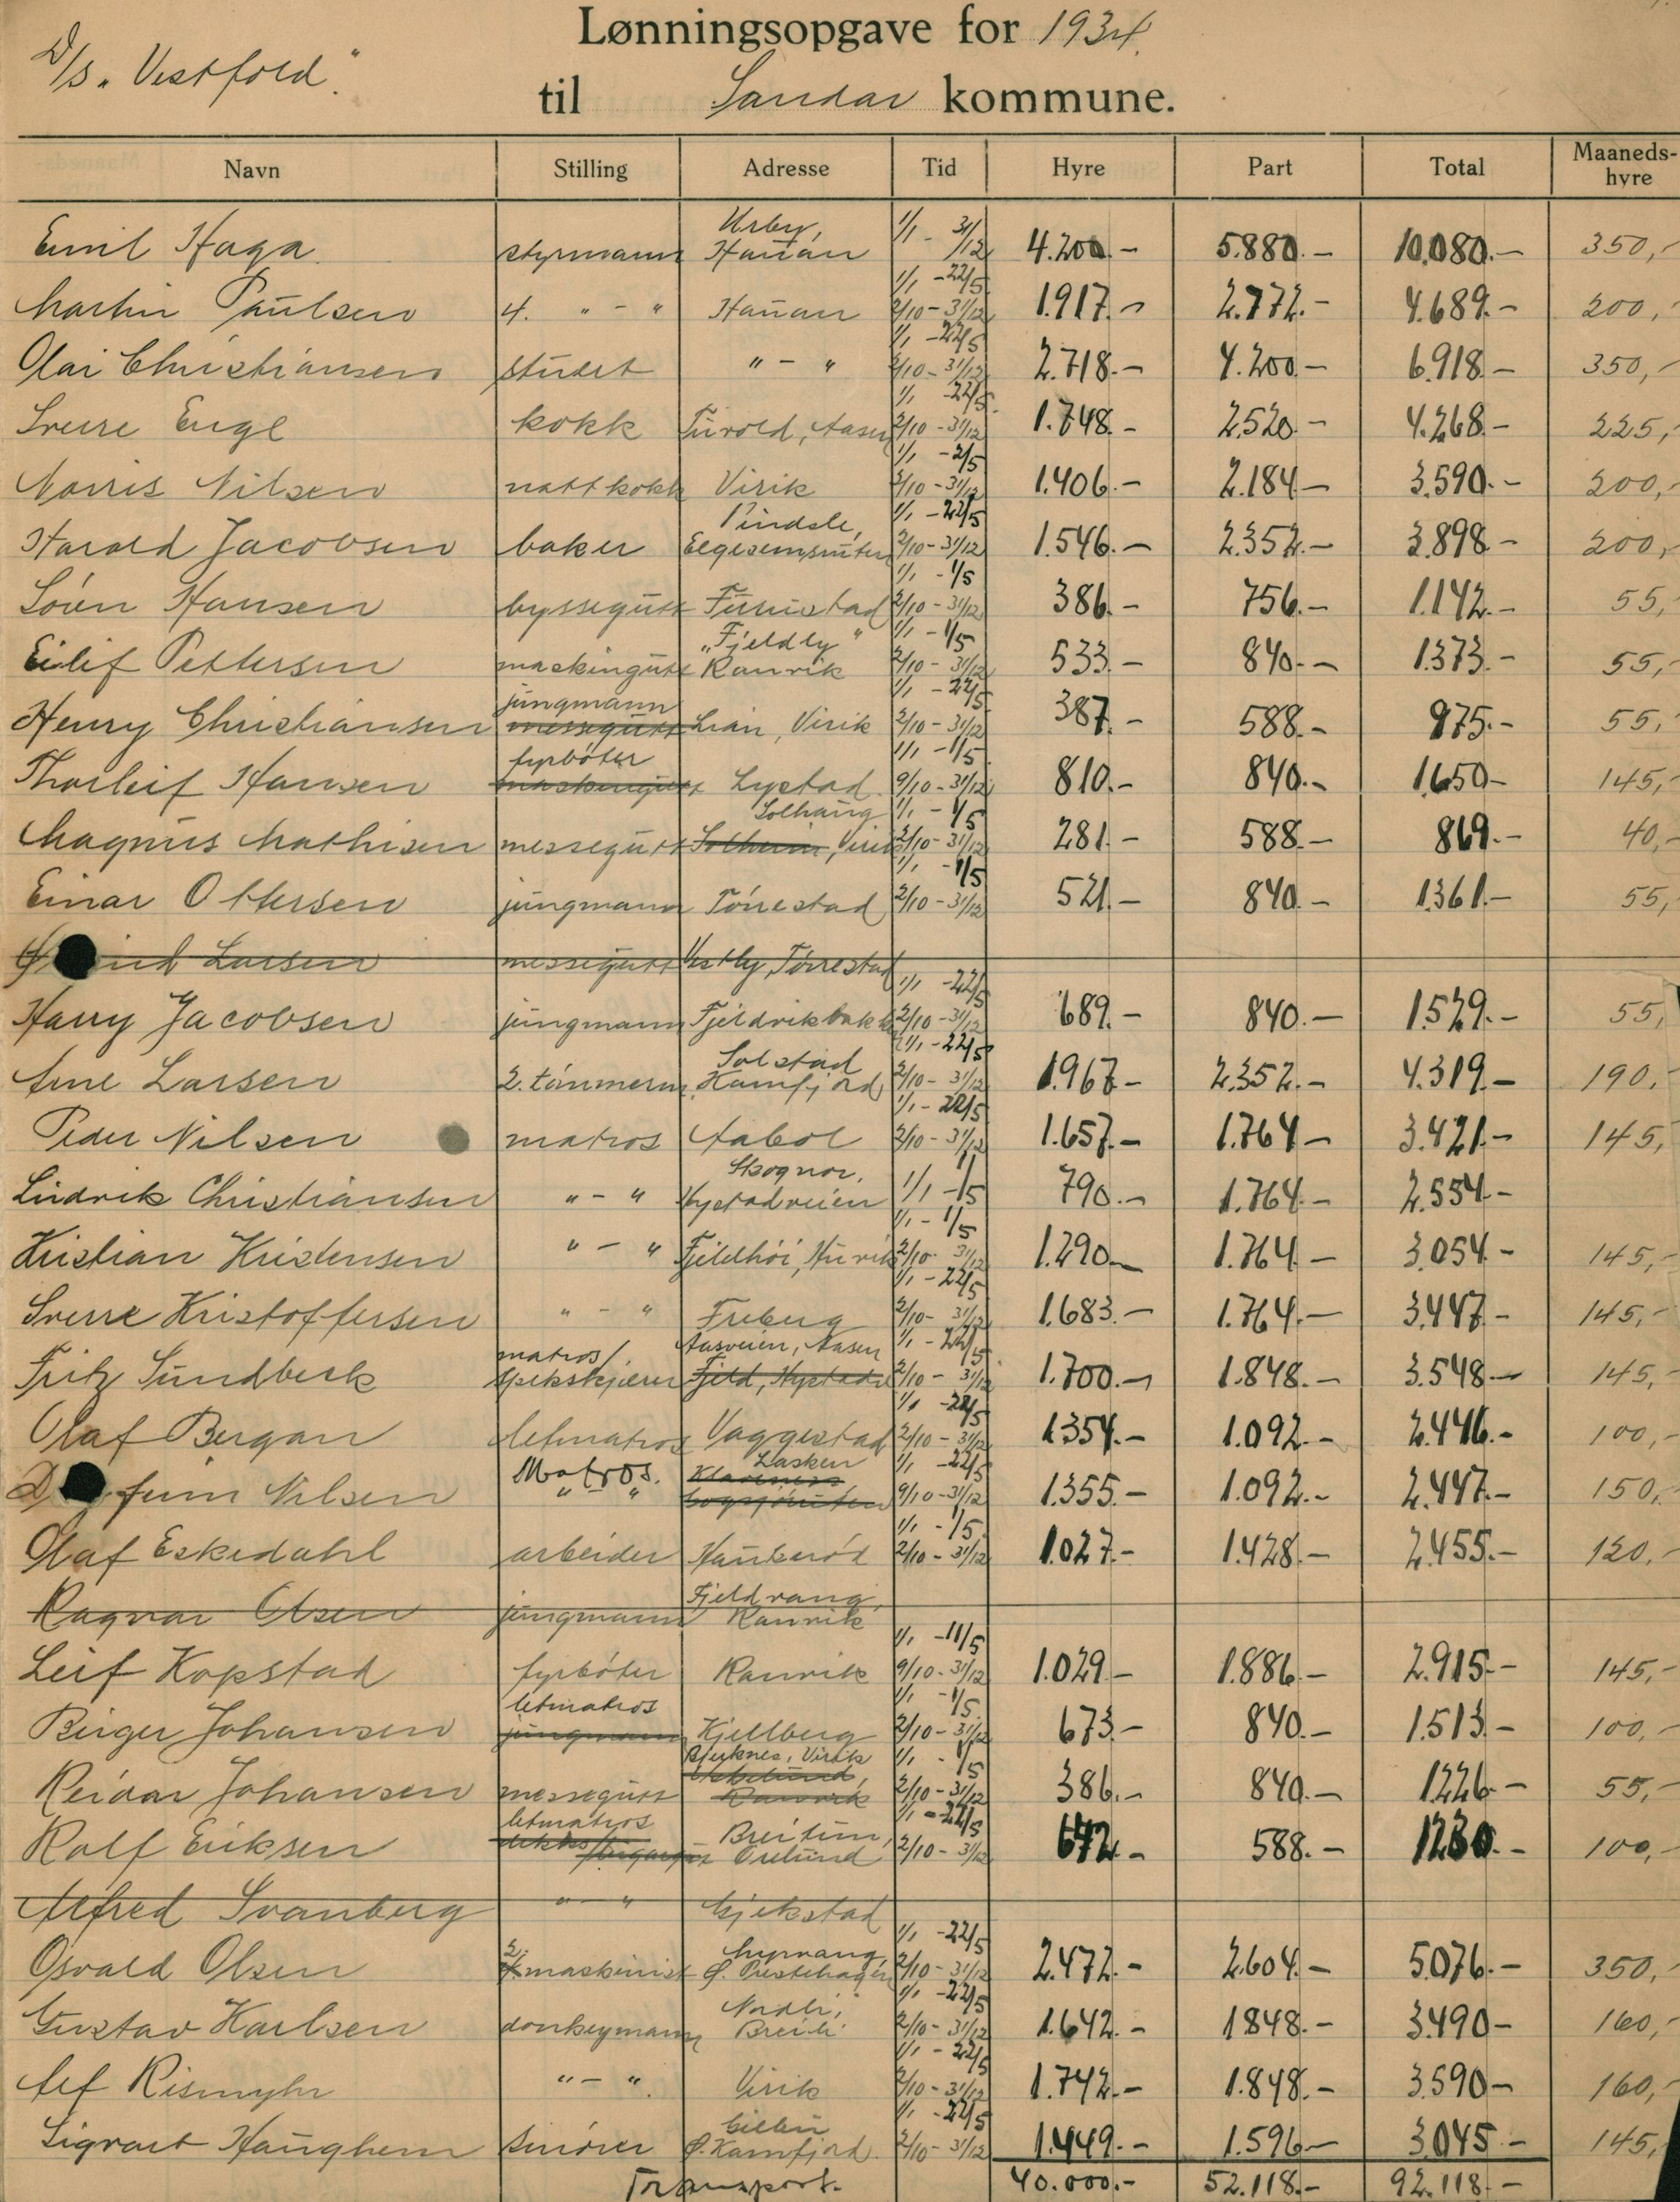 D/S „Vestfold".
Lønningsopgave for 1934.
til Sandar kommune.
Navn Stilling Adresse Tid Hyre Part Total Maaneds-hyre
Urby,
Emil Haga styrmann Hauan 1/1 - 31/12 4.200.- 5.880.- 10.080.- 350,-
1/1 - 22/5
Martin Paulsen 4. " - " Hauan 2/10 - 31/12 1.917.- 2.772.- 4.689.- 200,-
1/1 - 22/5
Olai Christiansen stuert " - " 2/10 - 31/12 2.718.- 4.200.- 6.918.- 350,-
1/1 - 22/5
Sverre Engl kokk Furold, Aasen 2/10 - 31/12 1.748.- 2.520.- 4.268.- 225,-
1/1 - 2/5
Norris Nilsen nattkokk Virik 2/10 - 31/12 1.406.- 2.184.- 3.590.- 200,-
Pindsle, 1/1 - 22/5
Harald Jacobsen baker 2/10 - 31/12 1.546.- 2.352.- 3.898.- 200,-
1/1 - 1/5
Søren Hansen byssegutt Furustad 2/10 - 31/12 386.- 756.- 1.142.- 55,-
„Fjeldly" 1/1 - 1/5
Eilif Pettersen maskingutt Ranvik 2/10 - 31/12 533.- 840.- 1.373.- 55,-
jungmann 1/1 - 22/5
Henry Christiansen messegutt Lian, Virik 2/10 - 31/12 387.- 588.- 975.- 55,-
fyrbøter 1/1 - 1/5
Thorleif Hansen maskingutt Lystad 9/10 - 31/12 810.- 840.- 1.650.- 145,-
Solhaug 1/1 - 1/5
Magnus Mathisen messegutt Solheim, Virik 2/10 - 31/12 281.- 588.- 869.- 40,-
1/1 - 1/5
Einar Ottersen jungmann Tørrestad 2/10 - 31/12 521.- 840.- 1.361.- 55,-
Larsen messegutt Vestly, Tørrestad
1/1 - 22/5
Harry Jacobsen jungmann Fjeldvikbakk 2/10 - 31/12 689.- 840.- 1.529.- 55,
Solstad 1/1 - 22/5
Arne Larsen 2. tømmerm. Kamfjord 2/10 - 31/12 1.967.- 2.352.- 4.319.- 190,-
1/1 - 22/5
Peder Nilsen matros Aabol 2/10 - 31/12 1.657.- 1.764.- 3.421.- 145,
Skognor,
Ludvik Christiansen " - " Nystadveien 1/1 - 1/5 790.- 1.764.- 2.554.-
1/1 - 1/5
Kristian Kristensen " - " Fjeldhøi, 2/10 - 31/12 1.290.- 1.764.- 3.054.- 145,-
1/1 - 22/5
Sverre Kristoffersen " - " Freberg 2/10 - 31/12 1.683.- 1.764.- 3.447.- 145,-
matros/ Aasveien, Aasen 1/1 - 22/5
Fritz Sundbeck spekskjærer Fjeld, 2/10 - 31/12 1.700.- 1.848.- 3.548.- 145,-
1/1 - 22/5
Olaf Bergan letmatros Vaggestad 2/10 - 31/12 1354.- 1.092.- 2.446.- 100,-
Matros. Lasken 1/1 - 22/5
Nilsen " " 9/10 - 31/12 1.355.- 1.092.- 2.447.- 150,-
1/1 - 1/5
Olaf Eskedahl arbeider Haukerød 2/10 - 31/12 1.027.- 1.428.- 2.455.- 120,-
Fjeldvang,
Ragnar Olsen jungmann Ranvik
1/1 - 11/5
Leif Kopstad fyrbøter Ranvik 9/10 - 31/12 1.029.- 1.886.- 2.915.- 145,-
letmatros 1/1 - 1/5
Birger Johansen jungmann Kjellberg 2/10 - 31/12 673.- 840.- 1.513.- 100,-
Bjerknes, Virik 1/1 - 1/5
Reidar Johansen messegutt Ranvik 2/10 - 31/12 386.- 840.- 1226.- 55,-
letmatros Breitun, 1/1 - 22/5
Rolf Eriksen Orelund 2/10 - 31/12 642.- 588.- 1230.- 100,-
Alfred Svanberg " - " Gjekstad
2. Myrvang 1/1 - 22/5
Osvald Olsen maskinist Ø. Prestehagen 2/10 - 31/12 2.472.- 2.604.- 5.076.- 350,-
Nordli, 1/1 - 22/5
Gustav Karlsen donkeymann Breili 2/10 - 31/12 1.642.- 1848.- 3.490- 160,-
1/1 - 22/5
Alf Rismyhr " - " Virik 2/10 - 31/12 1.742.- 1.848.- 3.590- 160,-
1/1 - 22/5
Sigvart Haughem smører Ø. Kamfjord 2/10 - 31/12 1.449.- 1.596.- 3.045.- 145,-
Transport. 40.000.- 52.118.- 92.118.-